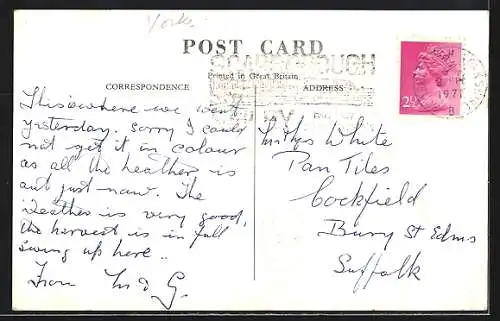 Yorks
POST CARD
Printed in Great Britain.
CORRESPONDENCE
ADDRESS
SCARBOROUGH
197
B
2½
This is where we went
yesterday. Sorry I could
not get it in colour
as all the heather is
out just now. The
Weather is very good,
the harvest is in full
swing up here.
From M & G.
White
Pan Tiles
Cockfield
Bury St Edms
Suffolk